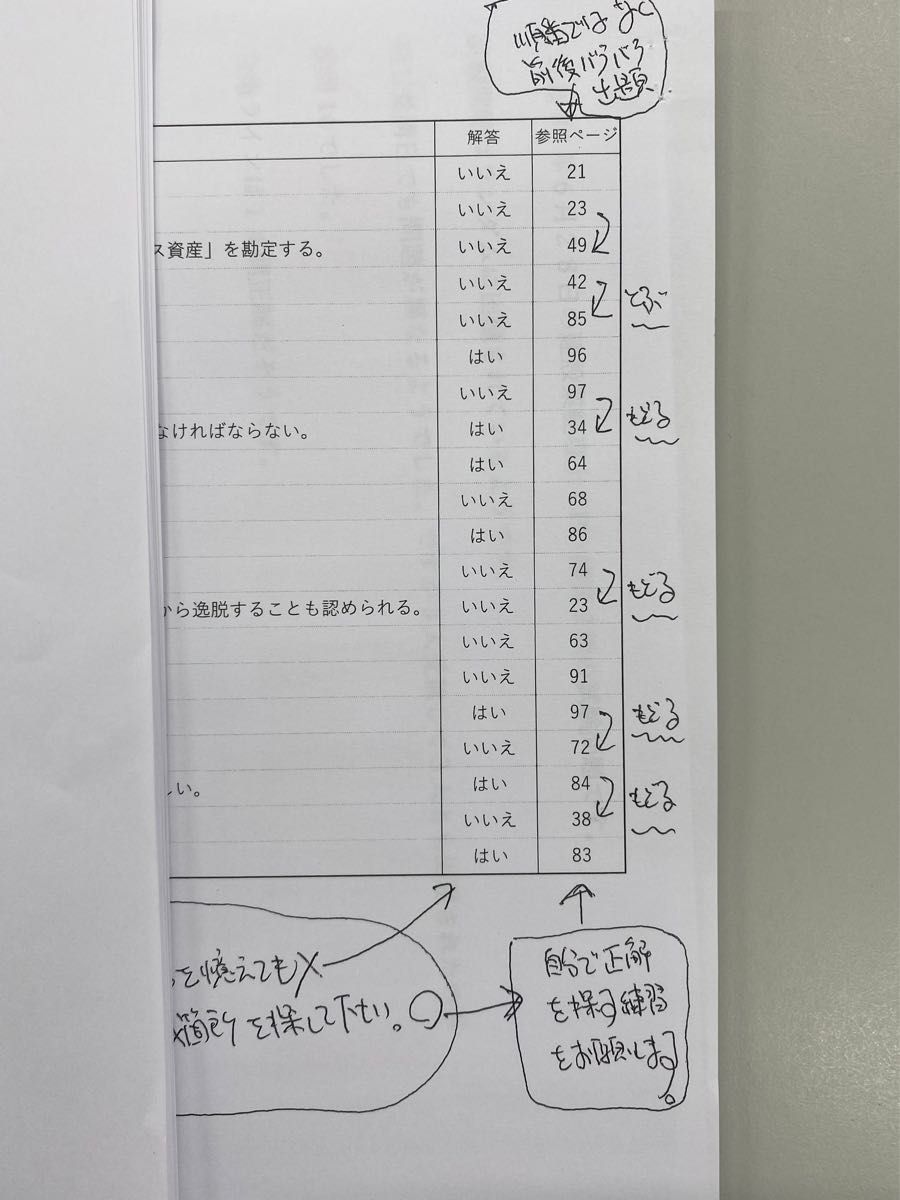 順番ではなく
前後バラバラ
出題
解答 参照ページ
いいえ 21
いいえ 23
ス資産」を勘定する。 いいえ 49
いいえ 42
とぶ
いいえ 85
はい 96
いいえ 97
もどる
なければならない。 はい 34
はい 64
いいえ 68
はい 86
いいえ 74
もどる
から逸脱することも認められる。 いいえ 23
いいえ 63
いいえ 91
はい 97
もどる
いいえ 72
しい。 はい 84
もどる
いいえ 38
はい 83
を憶えても×
箇所を探して下さい。○
自分で正解
を探す練習
をお願いします。